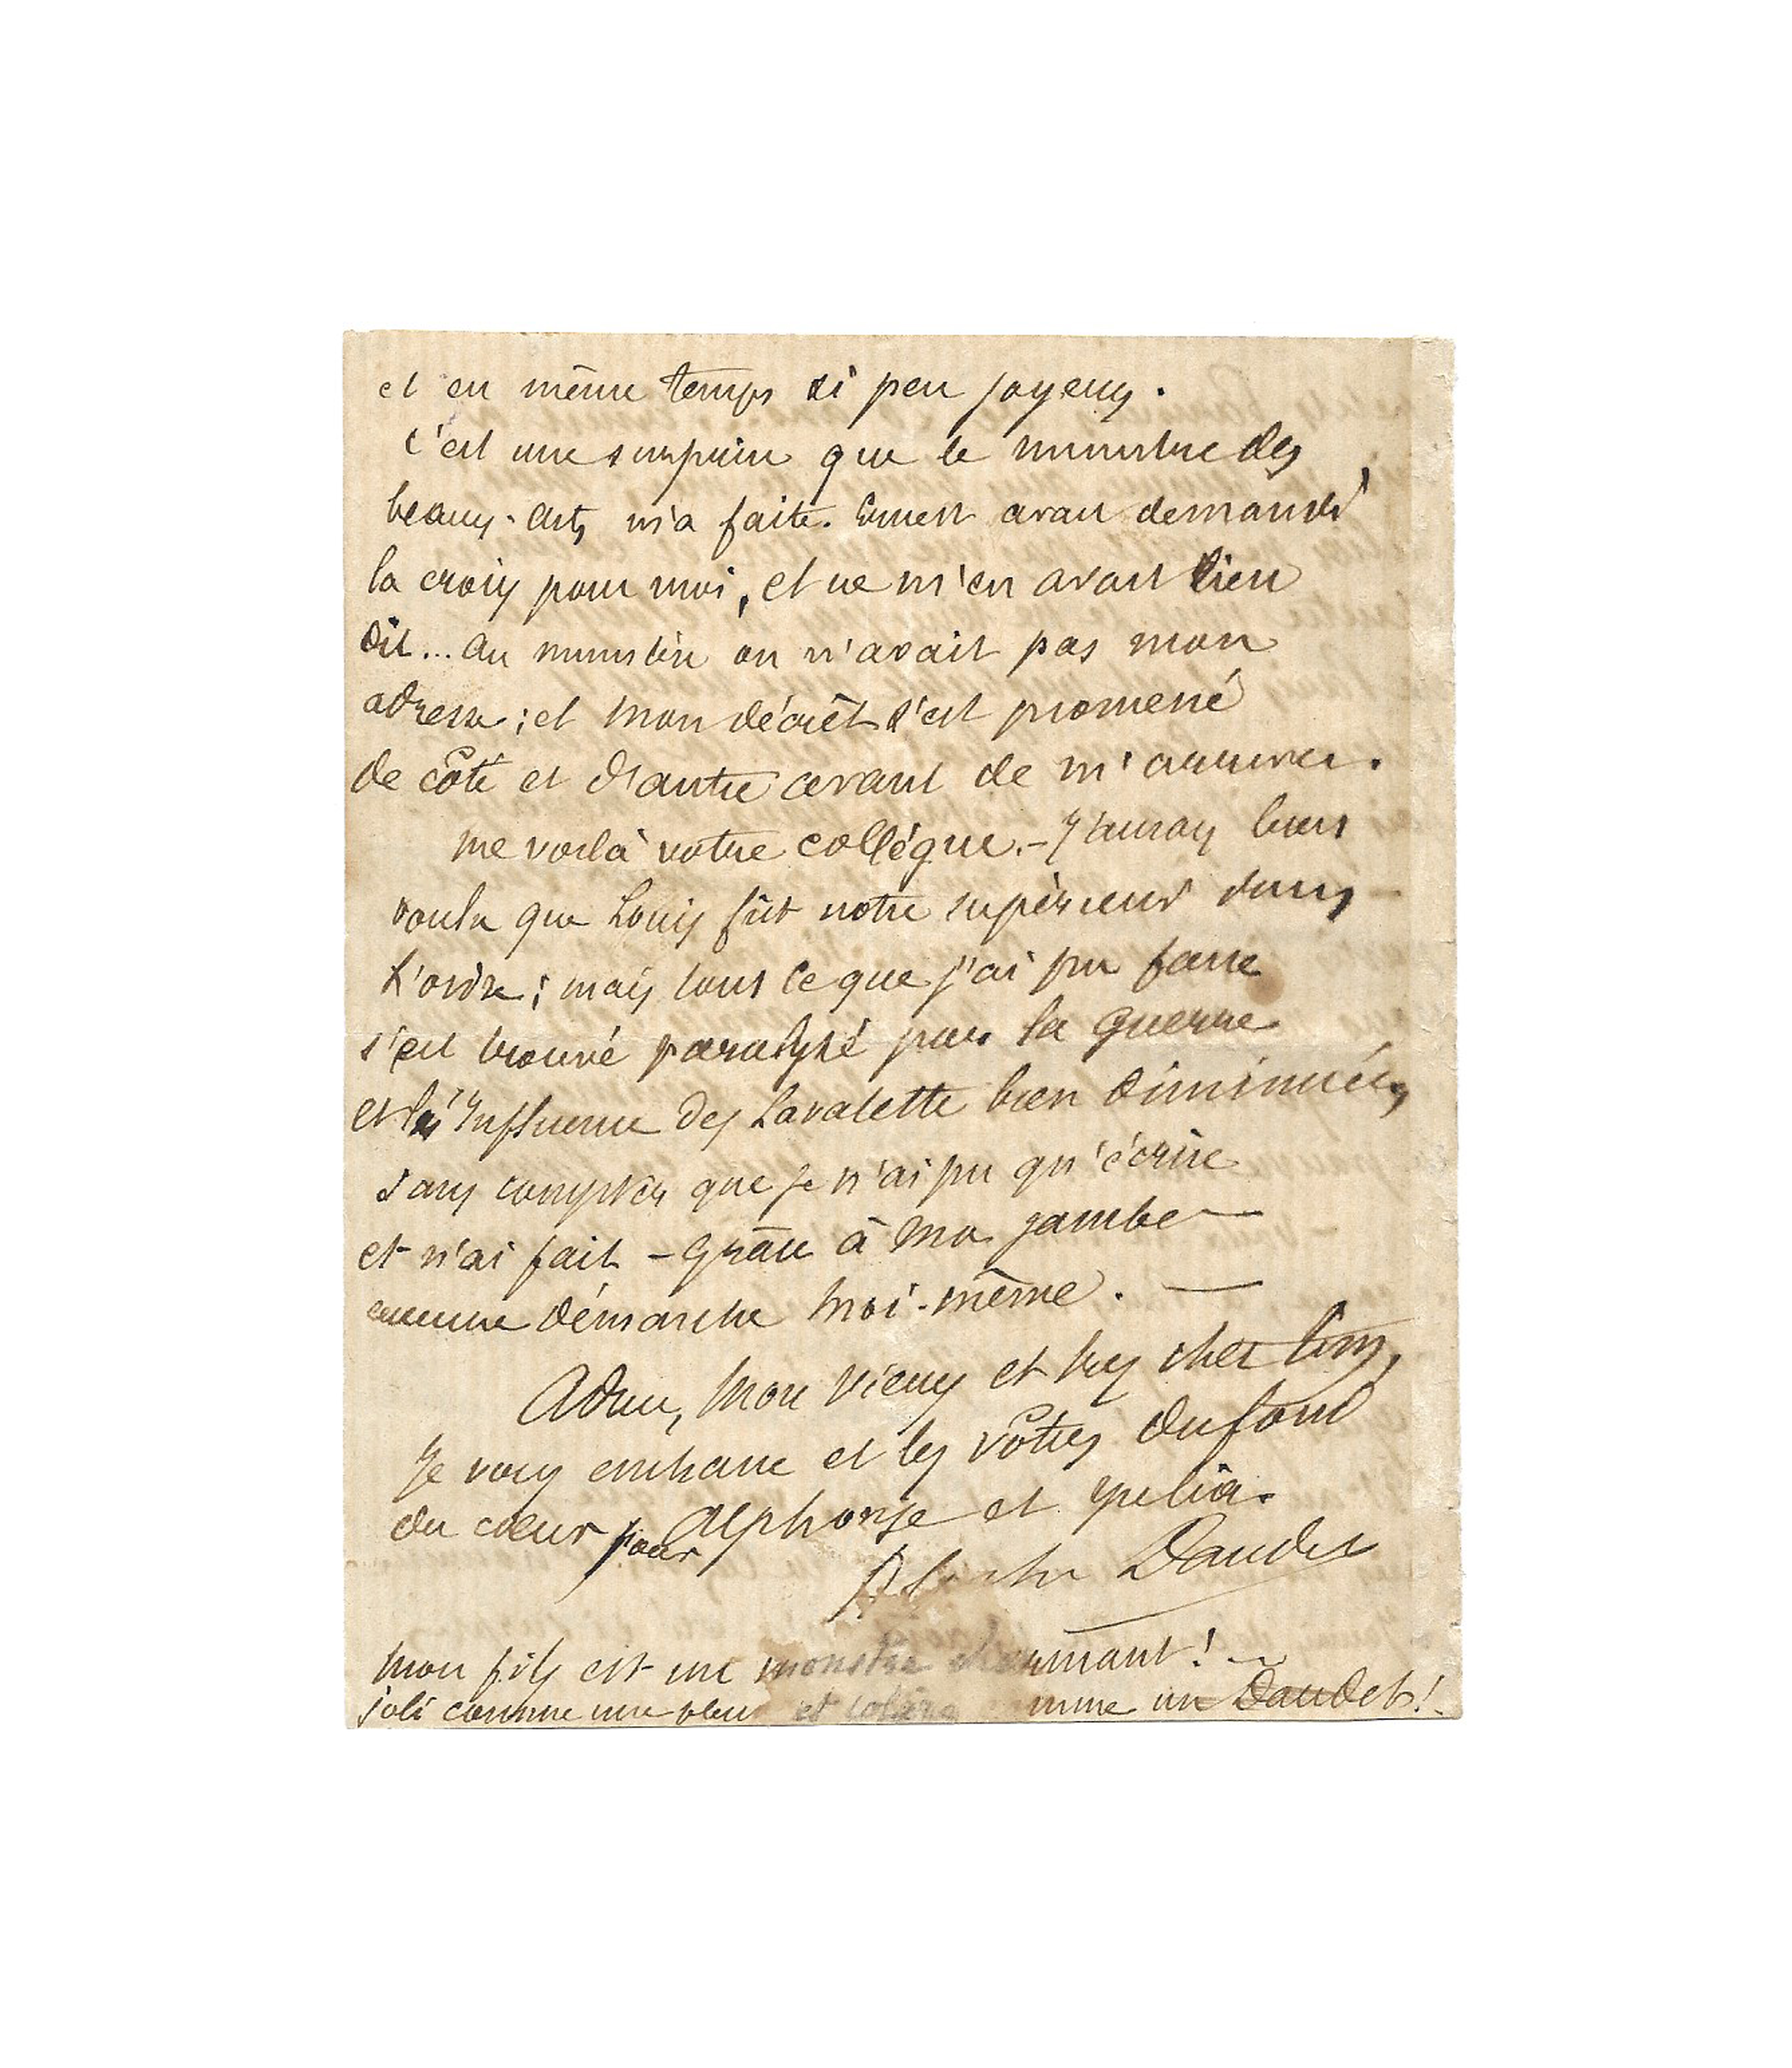 et en même temps si peu joyeux.
C'est une surprise que le ministre des
beaux-arts m'a faite. Ernest avait demandé
la croix pour moi, et ne m'en avait rien
dit... au ministère on n'avait pas mon
adresse; et mon décrêt s'est promené
de côté et d'autre avant de m'arriver.
me voilà votre collègue. - J'aurais bien
voulu que Louis fût notre supérieur dans
l'ordre; mais tout ce que j'ai pu faire
s'est trouvé paralysé par la guerre
et l'influence des Lavalette bien diminuée,
sans compter que je n'ai pu qu'écrire
et n'ai fait - grâce à ma jambe -
aucune démarche moi-même. —
Adieu, mon vieux et très cher
Je vous embrasse et les vôtres du fond
du cœur pour Alphonse et Julia.
Alphonse Daudet
mon fils est un monstre charmant!
joli comme une fleur et colère comme un Daudet!